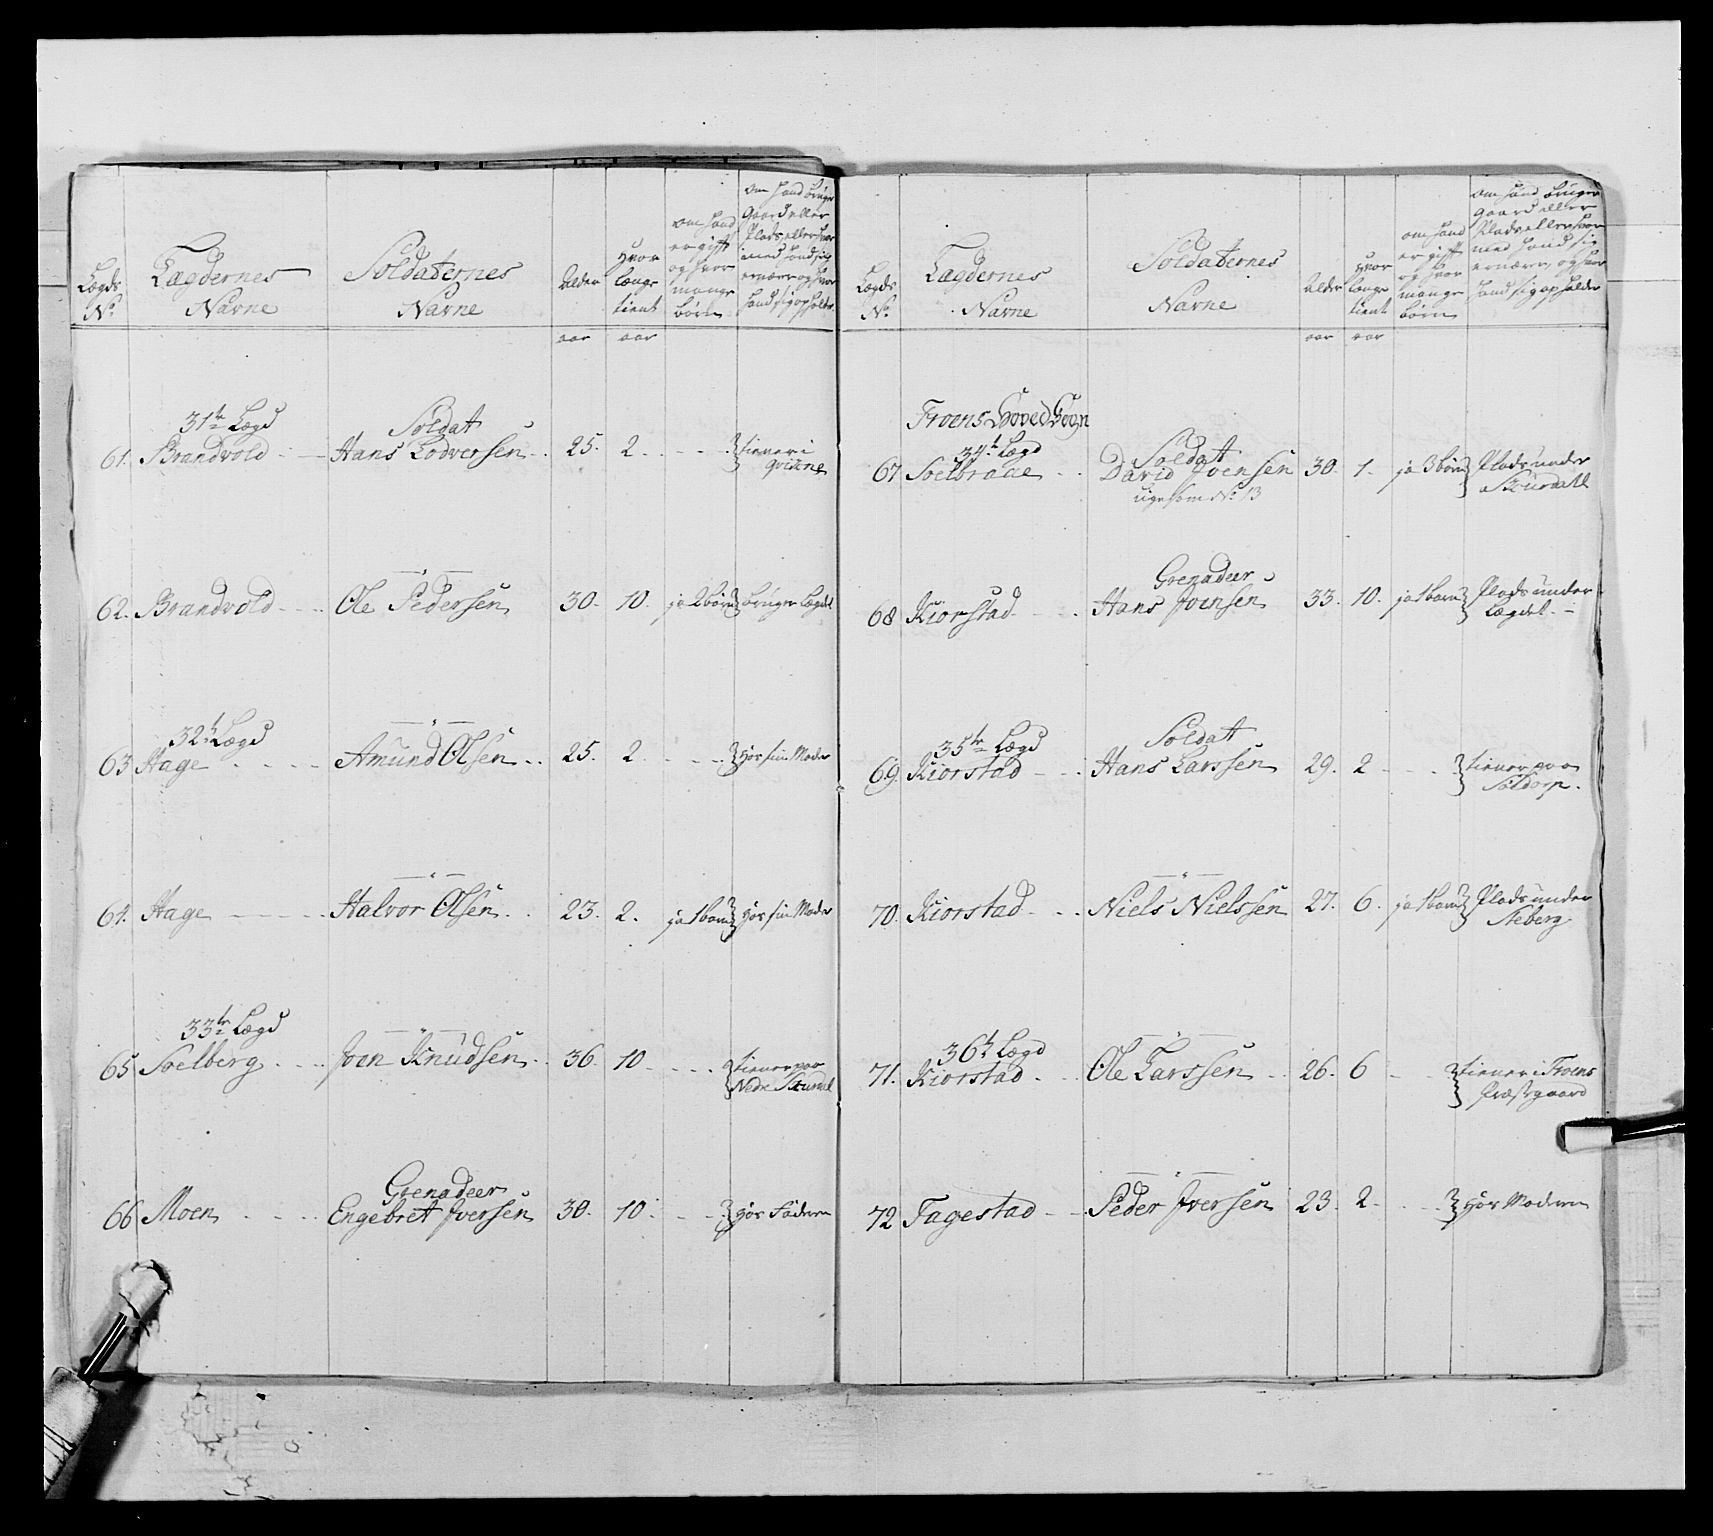 Lægds
No.
Lægdernes
Navne
Soldaternes
Navne
Alder
Hvor
længe
tient
om hand
er gift
og hvor
mange
børn
om hand bruger
Gaard eller
Plads eller hvor
med hand sig
ernærer og hvor
hand sig opholder
aar aar
31te Lægd
Soldat
61. Brandvold Hans Lodversen 25. 2. tiener i
qvikne
62. Brandvold Ole Pedersen 30. 10. ja 2 børn bruger Lægdet
32te Lægd
63 Hage Amund Olsen 25. 2. Hos sin Moder
64. Hage Halvor Olsen 23. 2. ja 1 barn Hos sin Moder
33te Lægd
65 Soelberg Joen Knudsen 36. 10. tiener paa
Nedre
Grenadeer
66 Moen Engebret Iversen 30. 10. Hos Faderen
Lægds
No.
Lægdernes
Navne
Soldaternes
Navne
Alder
Hvor
længe
tient
om hand
er gift
og hvor
mange
børn
om hand bruger
Gaard eller
Plads eller hvor
med hand sig
ernærer, og hvor
hand sig opholder
aar aar
Froens Hoved Sogn
34te Lægd
Soldat
67 Soelbraae David Joensen 30. 1. ja 3 børn Plads under
ligesom No. 13
Grenadeer
68 Kiorstad Hans Joensen 33. 10. ja 1 barn Plads under
Lægdet
35te Lægd
Soldat
69. Kiorstad Hans Larssen 29. 2 tiener paa
Soldorp.
70. Kiorstad Niels Nielssen 27. 6. ja 1 barn Plads under
Steberg
36te Lægd
71. Kiorstad Ole Larssen 26. 6 tiener i Froens
Præstgaard
72 Tagestad Peder Iversen 23. 2. Hos Moderen